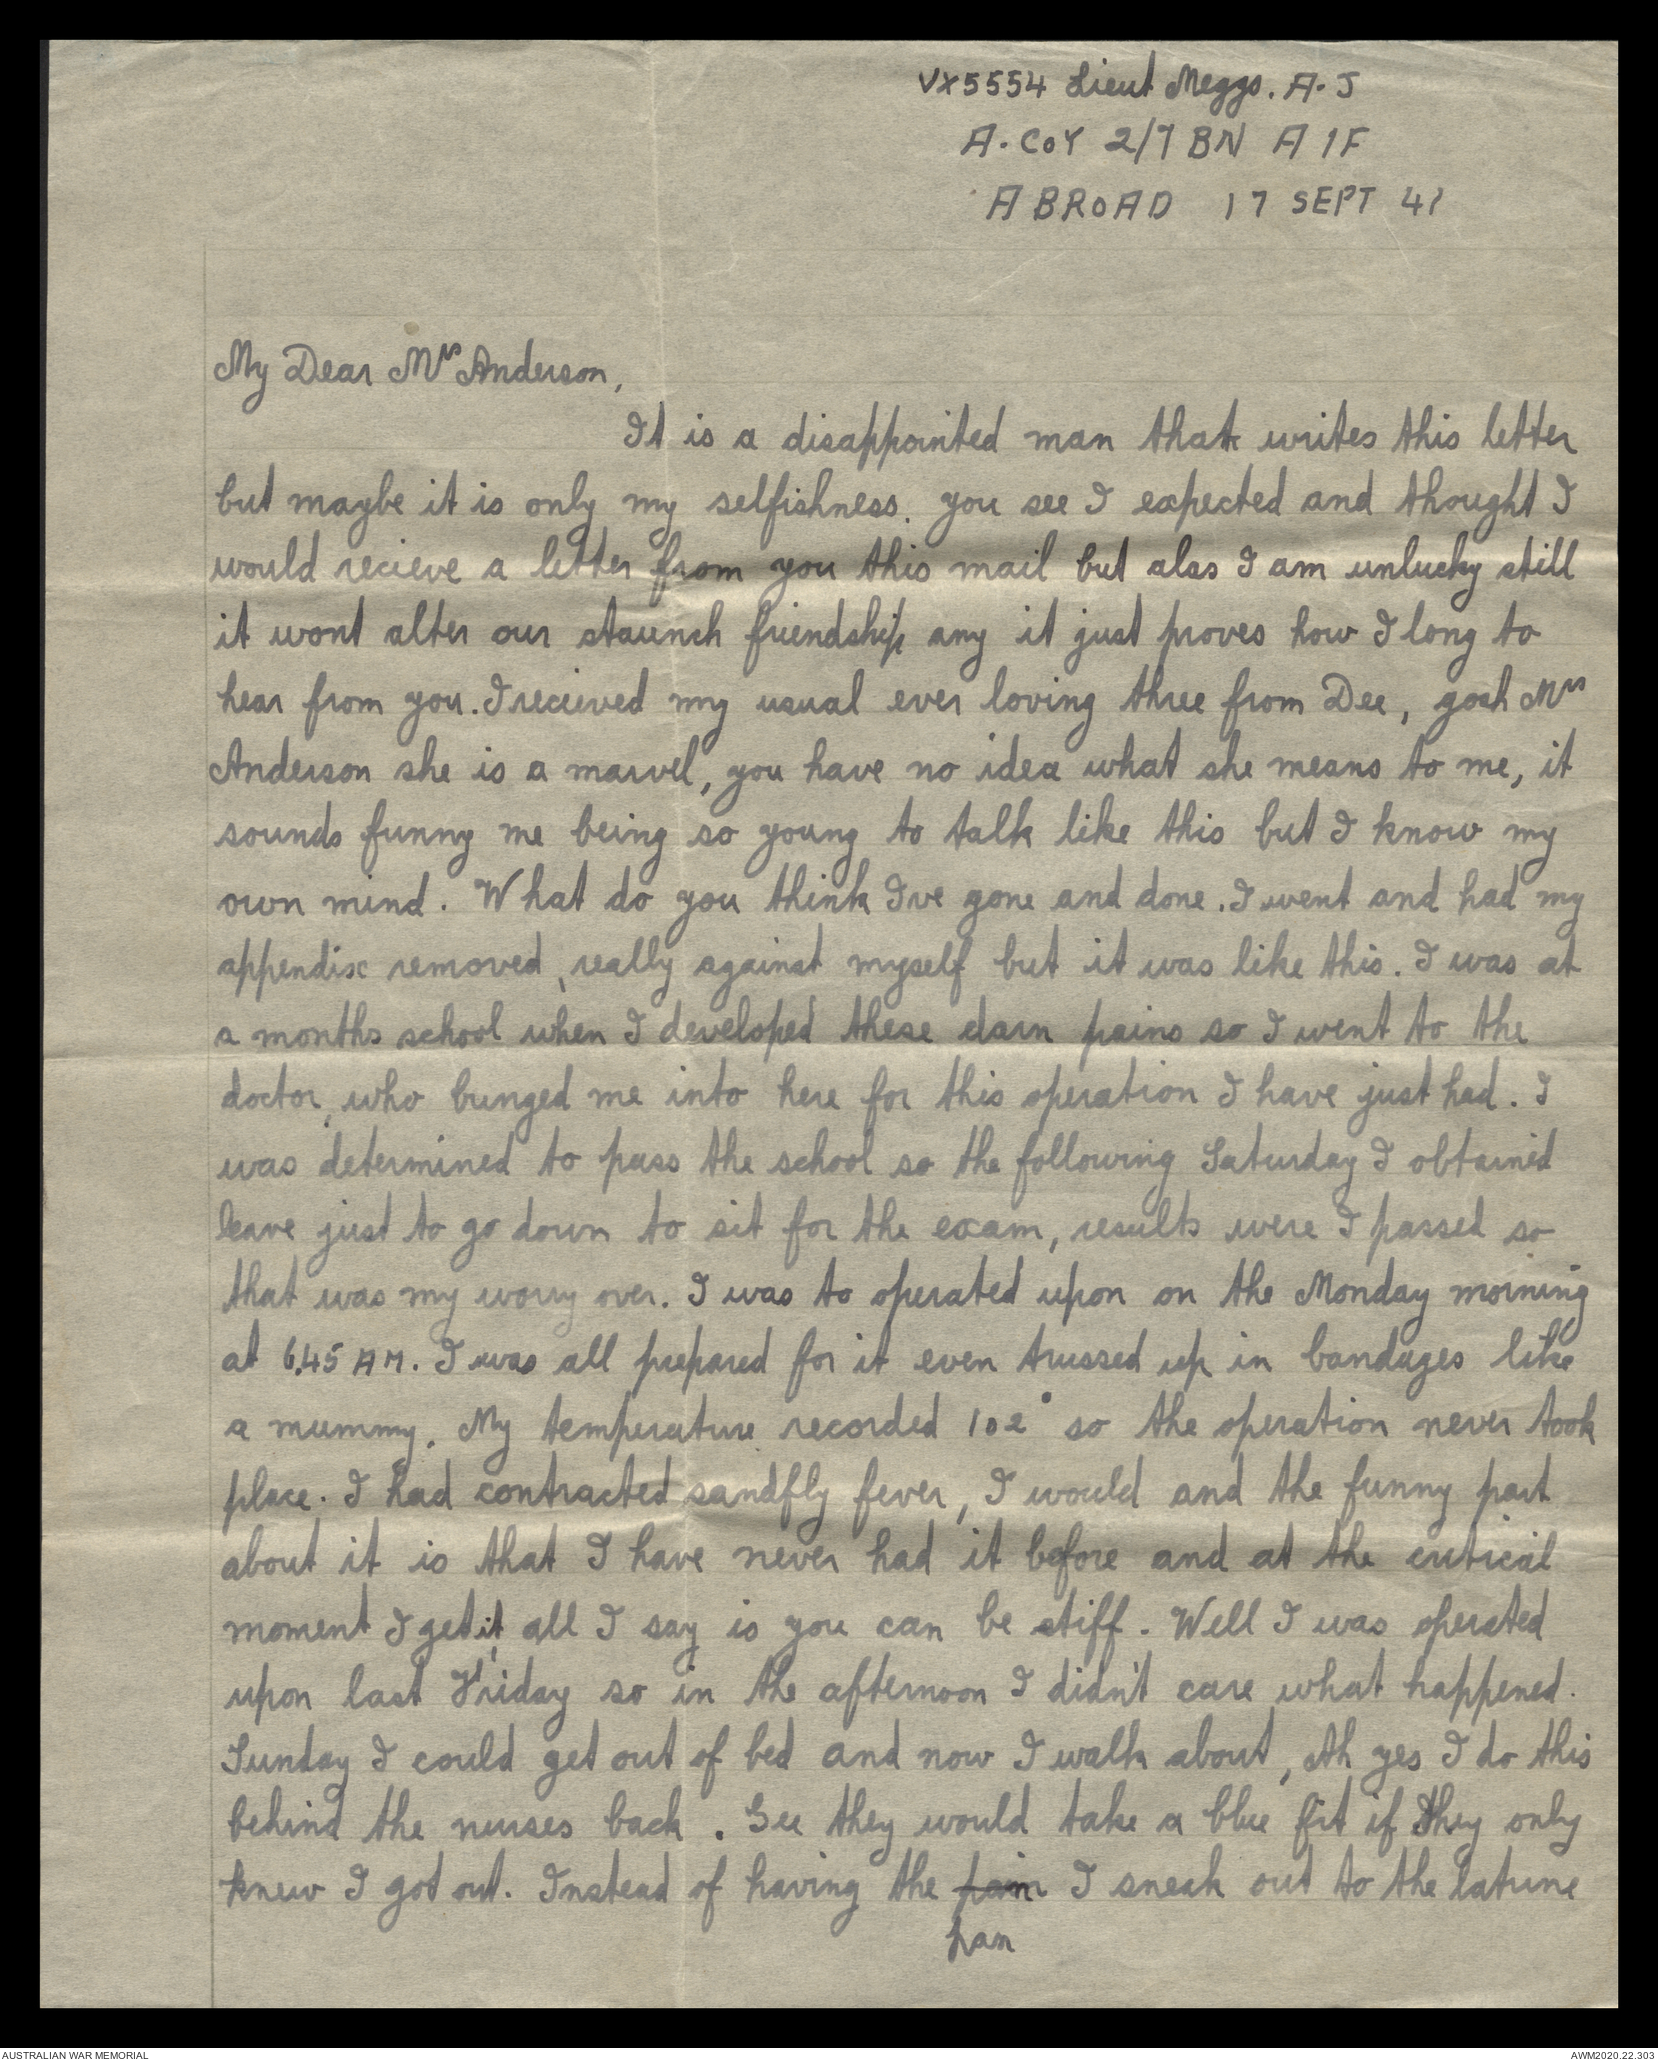 VX5554 Lieut Meggs. A. J
A. COY 2/7 BN A I F
ABROAD 17 SEPT 41
My Dear Mrs Anderson,
It is a disappointed man that writes this letter
but maybe it is only my selfishness. you see I expected and thought I
would recieve a letter from you this mail but alas I am unlucky still
it wont alter our staunch friendship any it just proves how I long to
hear from you. I recieved my usual ever loving three from Dee, gosh Mrs
Anderson she is a marvel, you have no idea what she means to me, it
sounds funny me being so young to talk like this but I know my
own mind. What do you think I've gone and done. I went and had my
appendix removed, really against myself but it was like this. I was at
a months school when I developed these darn pains so I went to the
doctor, who bunged me into here for this operation I have just had. I
was determined to pass the school so the following Saturday I obtained
leave just to go down to sit for the exam, results were I passed so
that was my worry over. I was to operated upon on the Monday morning
at 6.45 AM. I was all prepared for it even trussed up in bandages like
a mummy. My temperature recorded 102° so the operation never took
place. I had contracted sandfly fever, I would and the funny part
about it is that I have never had it before and at the critical
moment I get it, all I say is you can be stiff. Well I was operated
upon last Friday so in the afternoon I didn't care what happened.
Sunday I could get out of bed and now I walk about, Ah yes I do this
behind the nurses back. Gee they would take a blue fit if they only
knew I got out. Instead of having the pain I sneak out to the latrine
pan
AUSTRALIAN WAR MEMORIAL
AWM2020.22.303